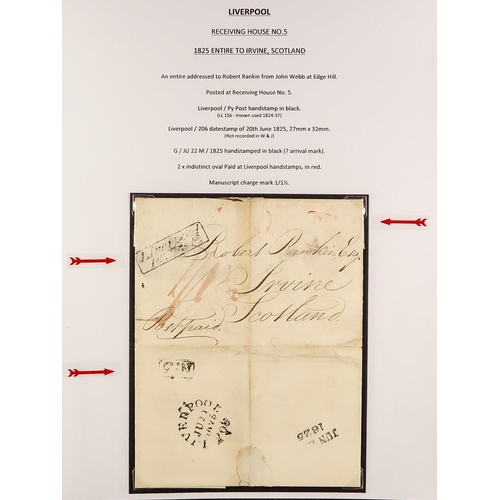 LIVERPOOL
RECEIVING HOUSE NO.5
1825 ENTIRE TO IRVINE, SCOTLAND
An entire addressed to Robert Rankin from John Webb at Edge Hill.
Posted at Receiving House No. 5.
Liverpool / Py Post handstamp in black.
(LL 156 - known used 1824-37)
Liverpool / 206 datestamp of 20th June 1825, 27mm x 32mm.
(Not recorded in W & J)
G / JU 22 M / 1825 handstamped in black (? arrival mark).
2 x indistinct oval Paid at Liverpool handstamps, in red.
Manuscript charge mark 1/1½.
Robert Rankin Esq
Irvine
Scotland
Post paid
LIVERPOOL
206
JUN
1825